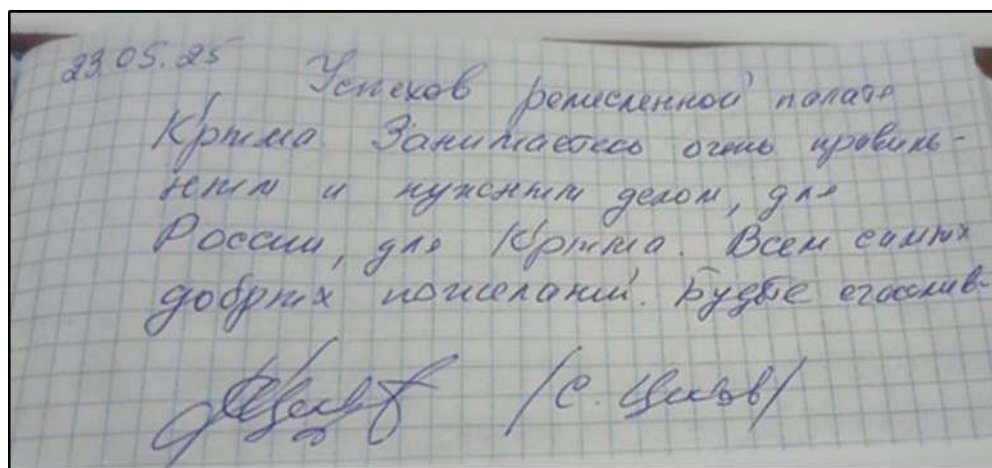 23.05.25 Успехов ремесленной палате
Крыма. Занимаетесь очень правиль-
ным и нужным делом, для
России, для Крыма. Всем самых
добрых пожеланий. Будьте счастлив-
/С. Цеков/